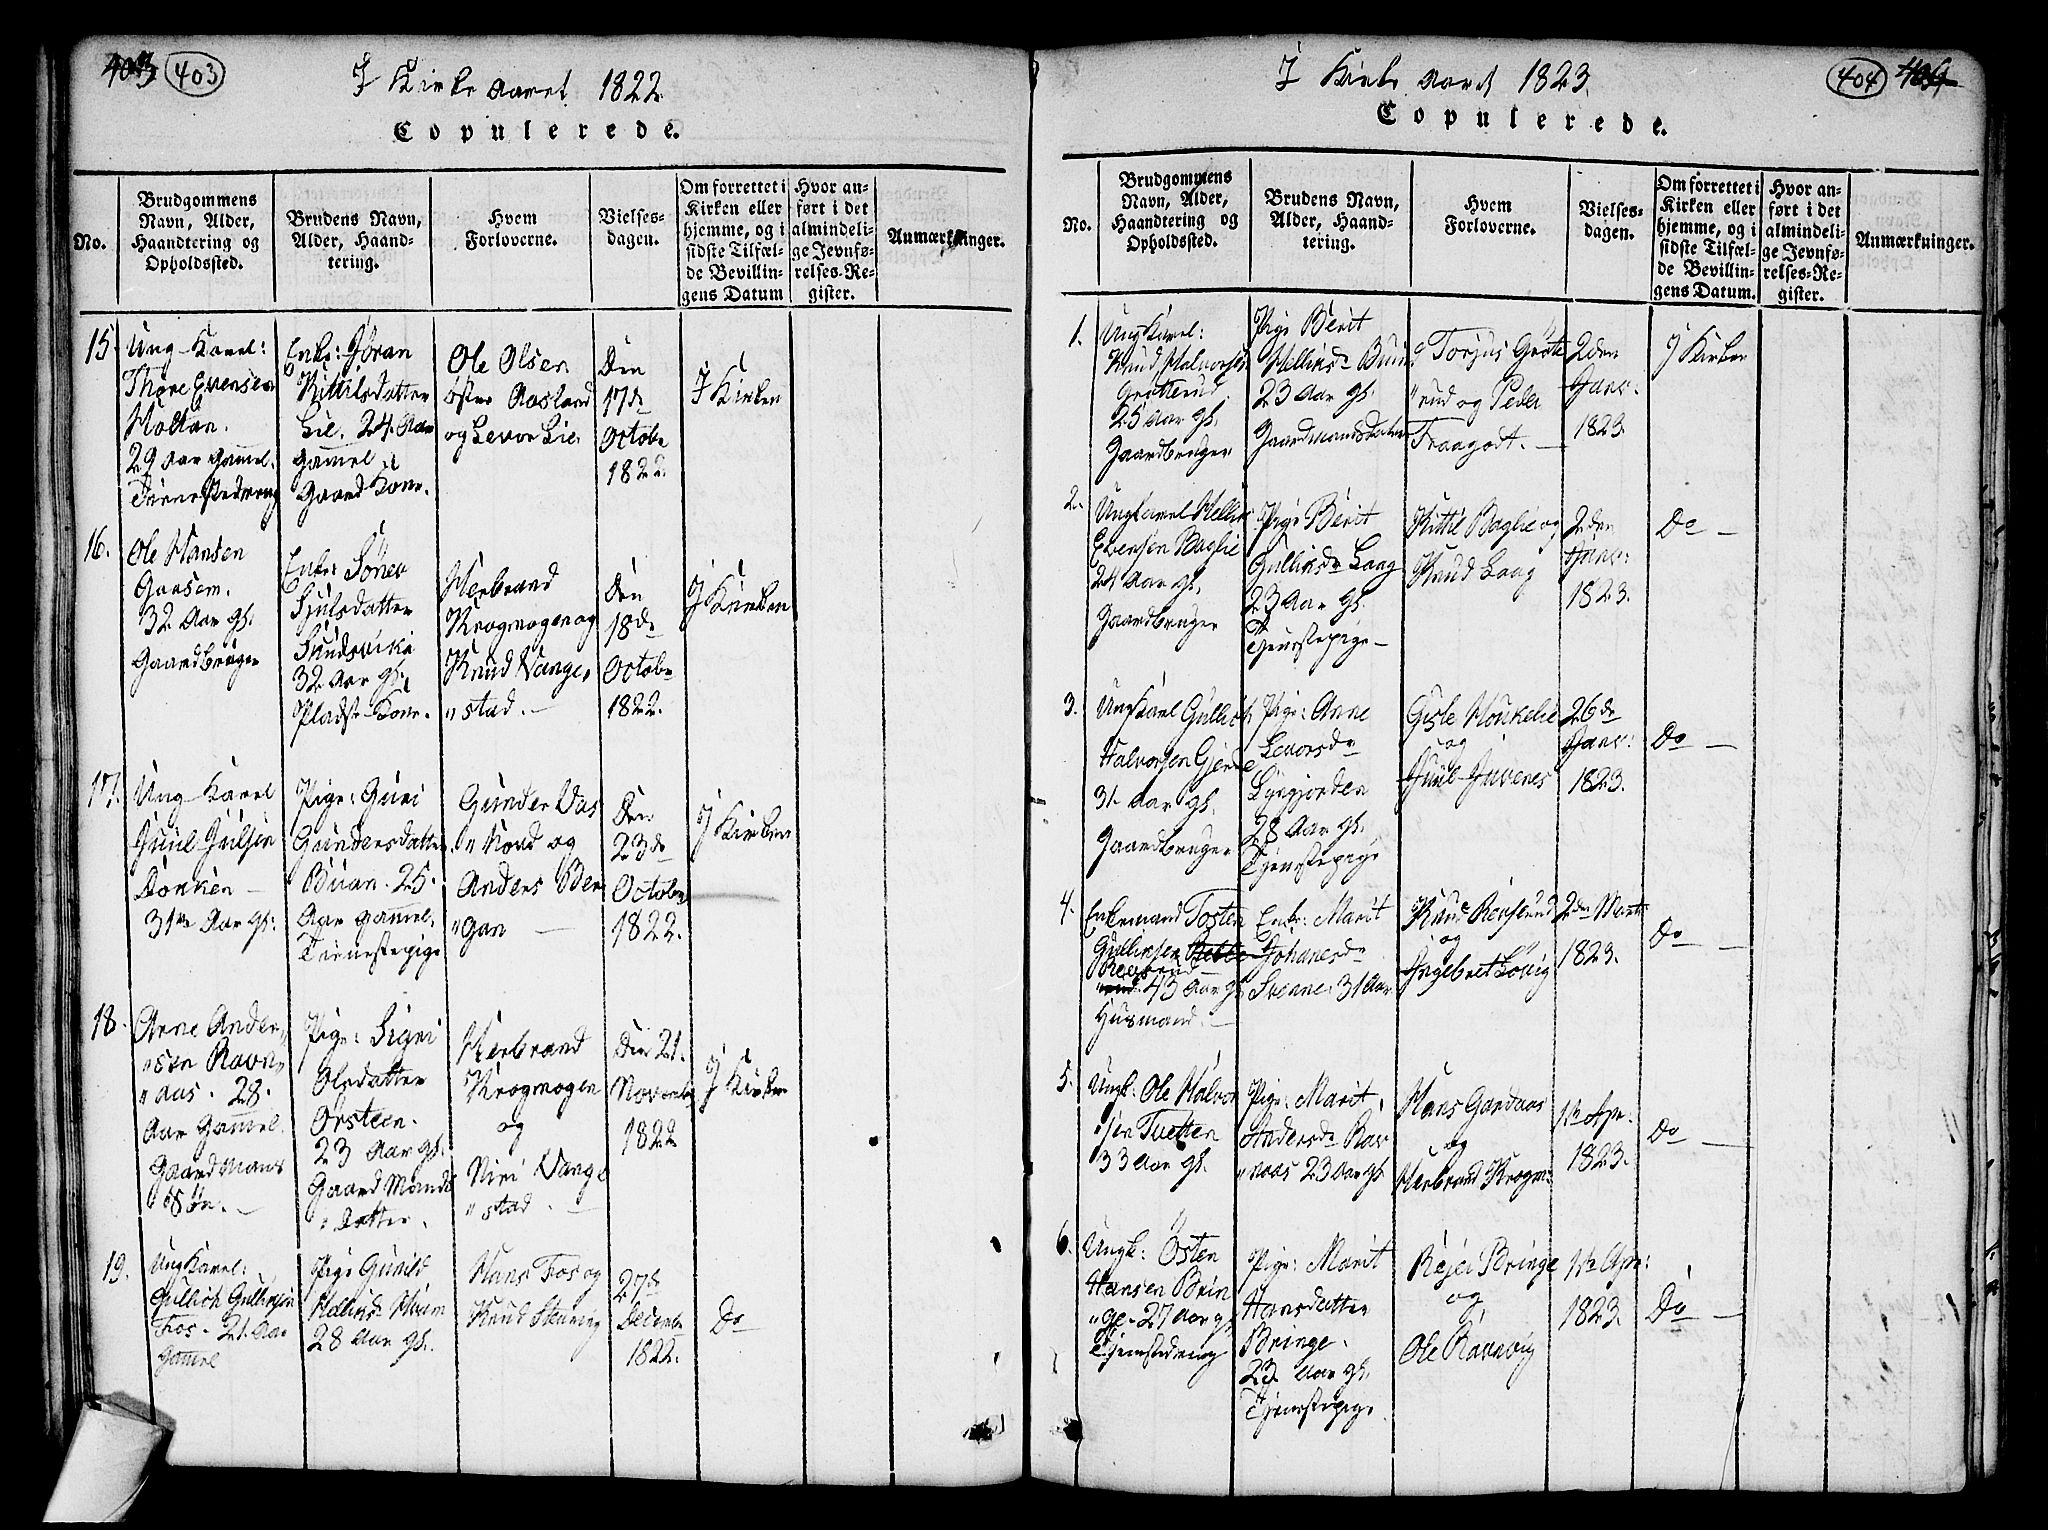 403
I Kirke Aaret 1822
Copulerede.
No.
Brudgommens
Navn, Alder,
Haandtering og
Opholdssted.
Brudens Navn,
Alder, Haand-
tering.
Hvem
Forloverne.
Vielses-
dagen.
Om forrettet i
Kirken eller
hjemme, og i
sidste Tilfæl-
de Bevillin-
gens Datum
Hvor an-
ført i det
almindeli-
ge Jevnfø-
relses-Re-
gister.
Anmærkninger.
15.
Ung-Karl:
Thore Evensen
Holtan.
29 Aar gamel.
Tienestedreng
Enke: Jöran
Kittilsdatter
Lie. 24 Aar
gamel
Gaard Kone.
Ole Olsen
öster Aasland
og Levor Lie.
Den
17de
Octobr
1822.
I Kirken
16.
Ole Hansen
Gaasem.
32 Aar gl.
Gaardbruger
Enke: Söner
Sjulsdatter
Skudsvike
32 Aar gl.
Pladst-Kone.
Herbrand
Krogmogen og
Knud Vange-
"stad. -
Den
18de
Octobr
1822.
I Kirken
17.
Ung-Karl
Juul Julsen
Donken -
31te Aar gl:
Pige: Guri
Gundersdatter
Buan. 25.
Aar gamel.
Tienestepige
Gunder Aas
"Nord og
Anders Ber
"gan -
Den
23de
Octobr
1822.
I Kirken
18.
Arne Ander-
"sen Ravn-
"aas. 28.
Aar Gammel.
Gaardmans
Sön. -
Pige: Sigri
Olsdatter
Örsteen.
23 Aar gl.
Gaard Mands
"datter.
Herbrand
Krogmogen
og
Niri Vange
"stad. -
Den 21.
Novembr
1822
I Kirken
19.
Ung Karl:
Gullich Gullixsen
Fos. 21. Aar
Gamel
Pige Gunild
Hellinsd Hvam
28 Aar gl.
Hans Fos og
Knud Stenring
27de
Decembr
1822.
Do
I Kirke Aaret 1823.
404
Copulerede.
No.
Brudgommens
Navn, Alder,
Haandtering og
Opholdssted.
Brudens Navn,
Alder, Haand-
tering.
Hvem
Forloverne.
Vielses-
dagen.
Om forrettet i
Kirken eller
hjemme, og i
sidste Tilfæl-
de Bevillin-
gens Datum.
Hvor an-
ført i det
almindeli-
ge Jevnfø-
relses-Re-
gister.
Anmærkninger.
1.
Ungkarl:
Knud Halvorsen
Grötterud
25 Aar gl.
Gaardbruger
Pige Berit
Hellinsdr Buin
23 Aar gl.
Gaardmandsdatter
Torjus Gröte
"rud og Peder
Fraagodt. -
2den
Janr:
1823.
I Kirken
2.
Ungkarl Hellin
Evensen Baglie
24 Aar gl.
Gaardbruger
Pige Berit
Gulliksdr Laag
23 Aar gl.
Tjenestepige-
Kittil Baglie og
Knud Laag
2den
Janr:
1823.
Do -
3.
Ungkarl Gullich
Halvorsen Gjerde
31 Aar gl.
Gaardbruger
Pige: Anne
Levorsdr
Lyngjorden
28 Aar gl.
Tjenestepige
Gisle Houkelie
og
Juul Juvenes
26de
Janr:
1823.
Do -
4.
Enkemand Tosten
Gullixsen
43 Aar gl.
Husmand. -
Enke: Marit
Johanesdr
Svenne: 31 Aar
Knud Renslud
og
Ingebret Lövig
2den Marts
1823.
Do -
5.
Ungk: Ole Halvor
"sen Tvetten
33 Aar gl.
Pige: Marit
Andersdr Rav
"naas 23 Aar gl.
Hans Gandaas
og
Herbrand Krogm:
1te Apr:
1823.
Do -
6.
Ungk: Östen
Hansen Brin
"ge- 27 Aar gl
Tjenestedreng
Pige: Marit
Hansdatter
Bringe.
23 Aar gl.
Tjenestepige
Rejei Bringe
og
Ole Ravnvig
1te Apr:
1823.
Do -